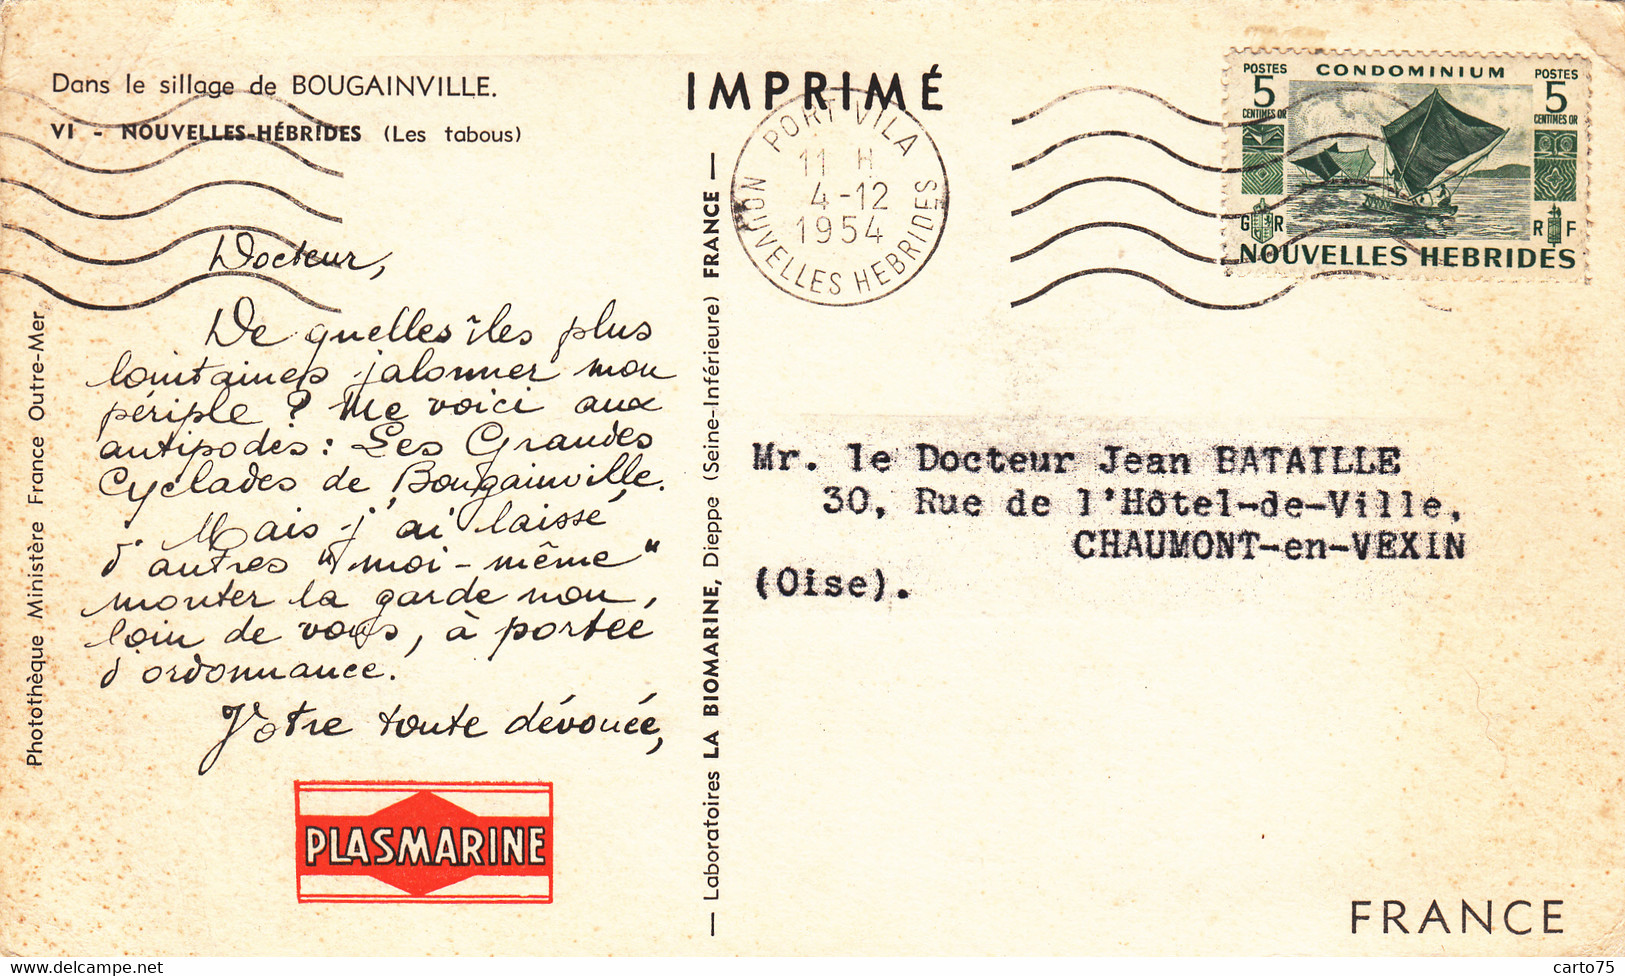 Dans le sillage de BOUGAINVILLE.
VI - NOUVELLES-HÉBRIDES (Les tabous)
IMPRIMÉ
PORT-VILA
11 H
4-12
1954
NOUVELLES HEBRIDES
POSTES
5
CENTIMES OR
CONDOMINIUM
POSTES
5
CENTIMES OR
G R
R F
NOUVELLES HEBRIDES
Docteur,
De quelles îles plus
lointaines jalonner mon
périple ? Me voici aux
antipodes : Les Grandes
Cyclades de Bougainville.
Mais j'ai laissé
d'autres "moi-même"
monter la garde non
loin de vous, à portée
d'ordonnance.
Votre toute dévouée,
PLASMARINE
Photothèque Ministère France Outre-Mer
— Laboratoires LA BIOMARINE, Dieppe (Seine-Inférieure) FRANCE —
Mr. le Docteur Jean BATAILLE
30, Rue de l'Hôtel-de-Ville,
CHAUMONT-en-VEXIN
(Oise).
FRANCE
carto75